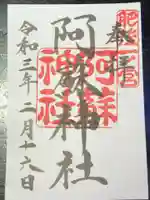 奉拝
肥後一宮
阿蘇神社
阿蘇神社
令和三年二月十六日